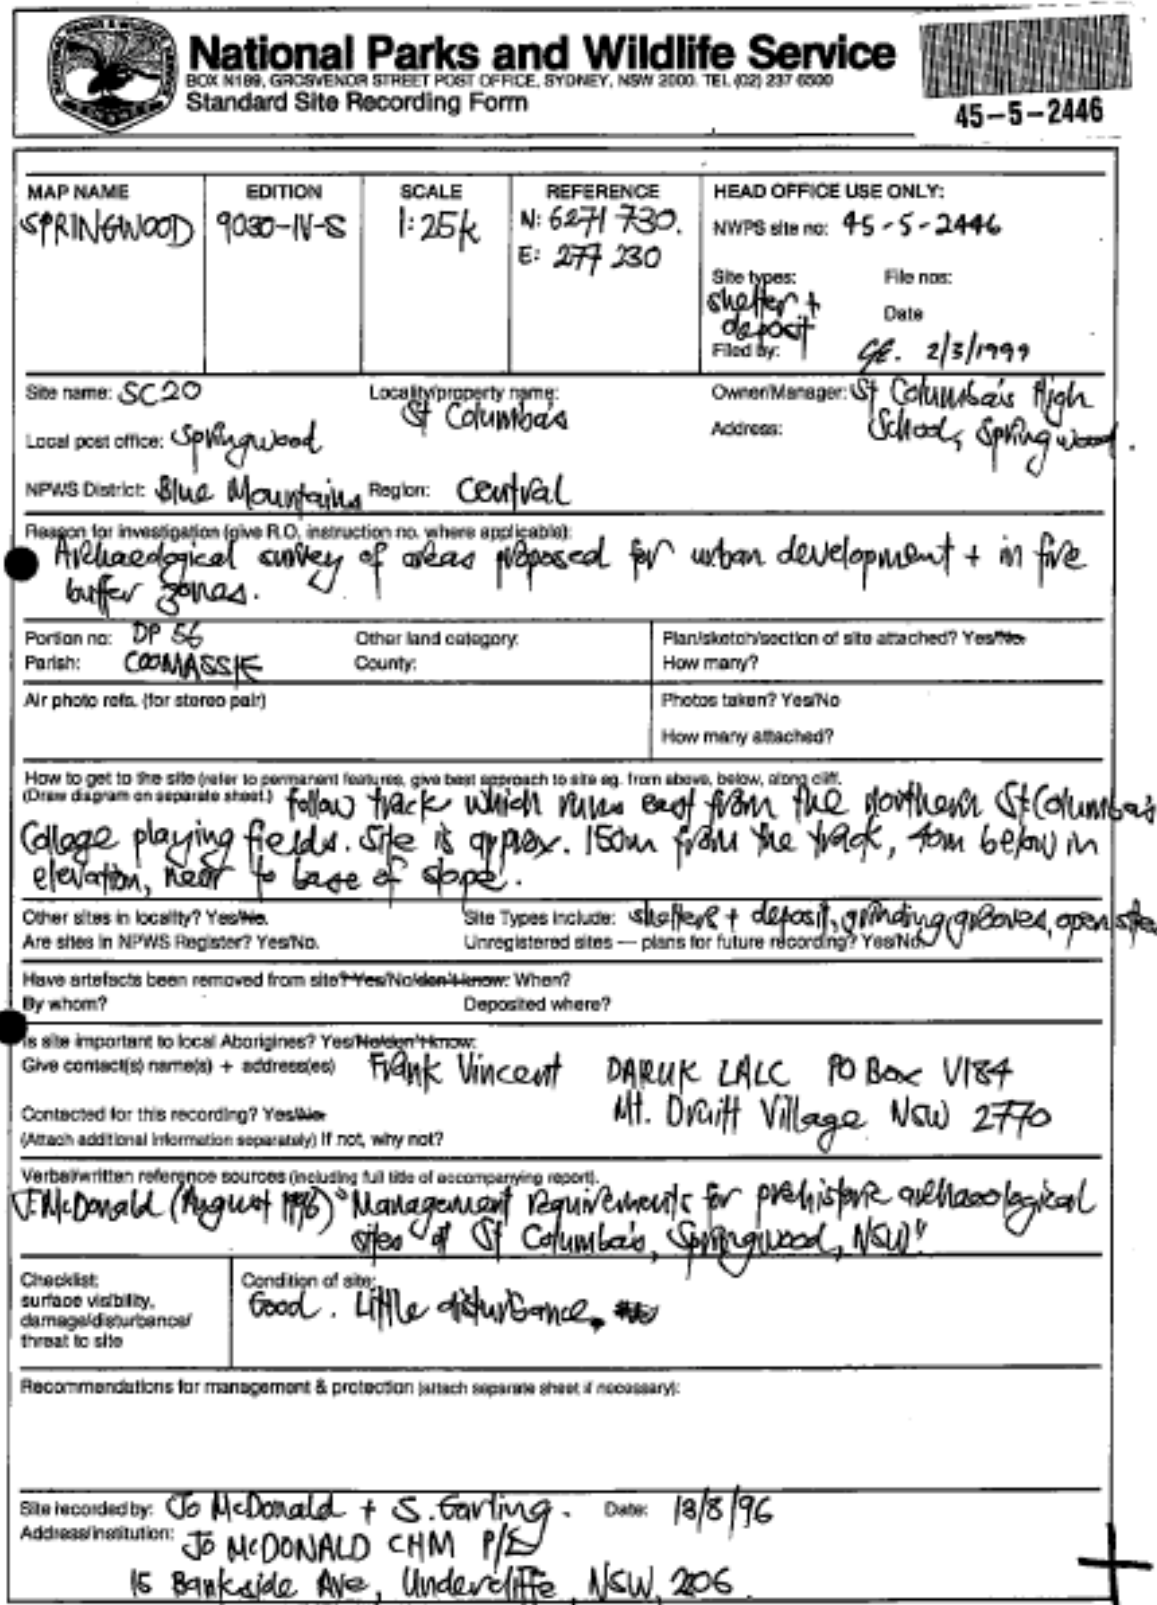 National Parks and Wildlife Service
BOX N189, GROSVENOR STREET POST OFFICE, SYDNEY, NSW 2000. TEL (02) 237 6500
Standard Site Recording Form
45-5-2446
MAP NAME EDITION SCALE REFERENCE HEAD OFFICE USE ONLY:
SPRINGWOOD 9030-IV-S 1:25k N: 6271 730. NWPS site no: 45-5-2446
E: 277 230
Site types: File nos:
shelter +
deposit Date
Filed by: GE. 2/3/1999
Site name: SC20 Locality/property name: Owner/Manager: St Columba's High
St Columba's
Local post office: Springwood Address: School, Springwood.
NPWS District: Blue Mountains Region: Central
Reason for investigation (give R.O. instruction no. where applicable):
Archaeological survey of areas proposed for urban development + in fire
buffer zones.
Portion no: DP 56 Other land category: Plan/sketch/section of site attached? Yes/No
Parish: COOMASSIE County: How many?
Air photo refs. (for stereo pair) Photos taken? Yes/No
How many attached?
How to get to the site (refer to permanent features, give best approach to site eg. from above, below, along cliff.
(Draw diagram on separate sheet.) follow track which runs east from the northern St Columba's
College playing fields. Site is approx. 150m from the track, 40m below in
elevation, near to base of slope.
Other sites in locality? Yes/No. Site Types include: shelters + deposit, grinding grooves, open sites
Are sites in NPWS Register? Yes/No. Unregistered sites — plans for future recording? Yes/No.
Have artefacts been removed from site? Yes/No/don't know: When?
By whom? Deposited where?
Is site important to local Aborigines? Yes/No/don't know:
Give contact(s) name(s) + address(es) Frank Vincent DARUK LALC PO Box V184
Contacted for this recording? Yes/No Mt. Druitt Village NSW 2770
(Attach additional information separately) If not, why not?
Verbal/written reference sources (including full title of accompanying report).
J. McDonald (August 1996) "Management Requirements for prehistoric archaeological
sites at St Columba's, Springwood, NSW"
Checklist: Condition of site:
surface visibility, Good. Little disturbance.
damage/disturbance/
threat to site
Recommendations for management & protection (attach separate sheet if necessary):
Site recorded by: Jo McDonald + S. Garling. Date: 13/8/96
Address/institution: Jo McDONALD CHM P/L
15 Bankside Ave, Undercliffe, NSW, 206